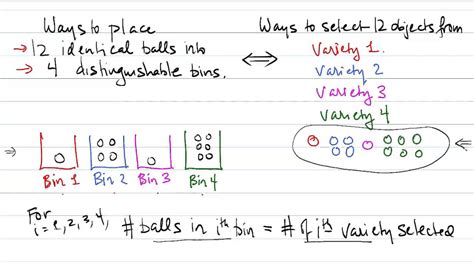 Ways to place
→ 12 identical balls into
→ 4 distinguishable bins.
⟺
Ways to select 12 objects from
Variety 1.
Variety 2
Variety 3
Variety 4
⇒
Bin 1 Bin 2 Bin 3 Bin 4
For
i=1,2,3,4, # balls in ith bin = # of ith variety selected